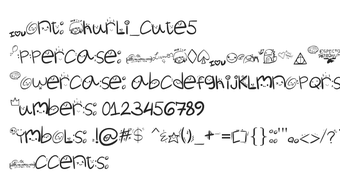 ont: hurLi_Cute5
ppercase:
owercase: abcdefghijKLMNOPQRS
umbers: 0123456789
ymboLs: .!@#$ ^&☆()_+-=[]{}:;"'<>/?
ccents: